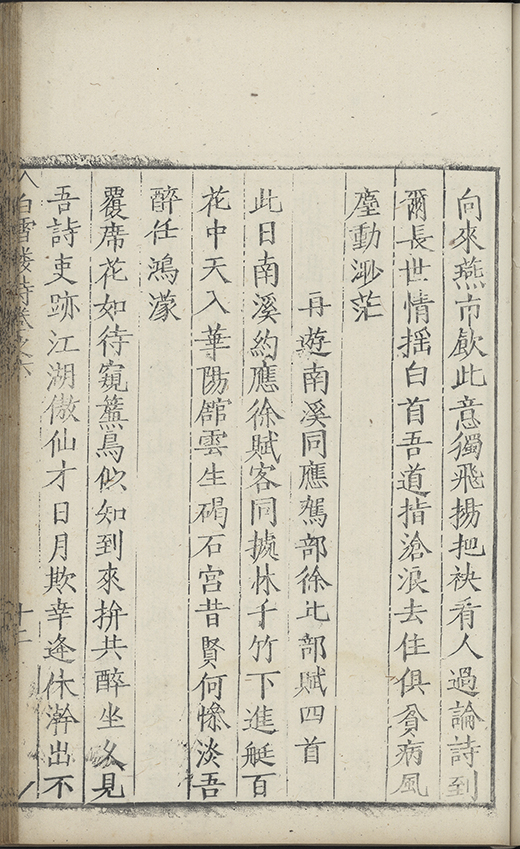 向來燕市飲此意獨飛揚把袂看人過論詩到
爾長世情揺白首吾道指滄浪去住俱貧病風
塵動渺茫
再遊南溪同應駕部徐比部賦四首
此日南溪約應徐賦客同據林千竹下進艇百
花中天入華陽舘雲生碣石宮昔賢何慘淡吾
醉任鴻濛
覆席花如待窺簾鳥似知到來拚共醉坐久見
吾詩吏跡江湖傲仙才日月欺幸逢休澣出不
白雪樓詩卷之六 十二